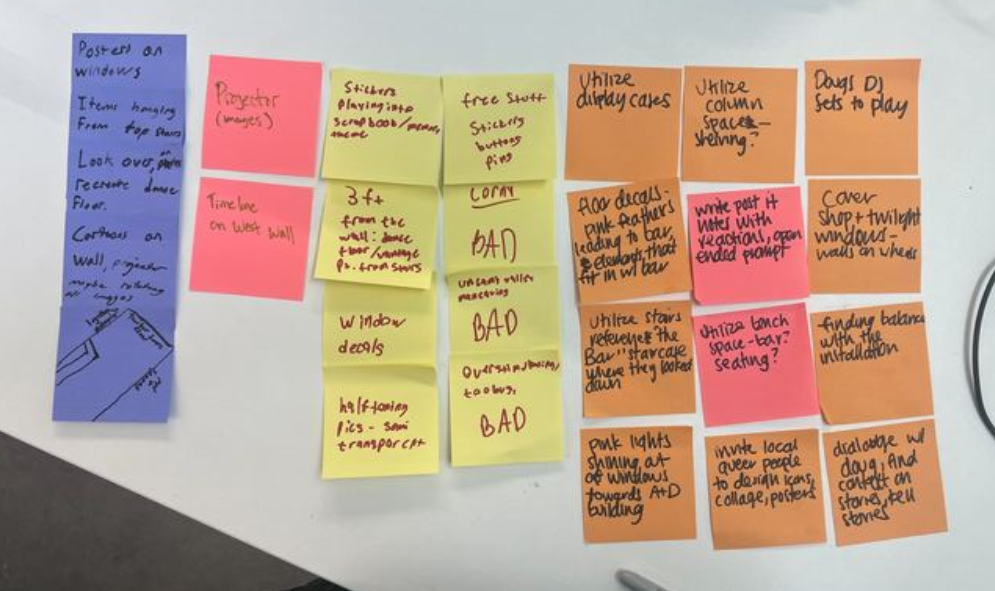 Posters on
windows
Items hanging
From top stairs
Look over,
recreate dance
Floor.
Cartoons on
wall, projector
maybe rotating
images
Projector
(images)
Timeline
on West Wall
Stickers
playing into
scrapbook/memory
theme
3 ft
from the
wall: dance
floor/vantage
pt. from stairs
Window
decals
halftoning
pics - semi
transparent
free stuff
Stickers
buttons
pins
CORNY
BAD
BAD
Overstimulating/
too busy
BAD
Utilize
display cases
Utilize
column
space -
shelving?
Dougs DJ
Sets to play
floor decals-
pink feathers
leading to bar,
elements that
fit in w/ bar
write post it
notes with
reactions, open
ended prompt
Cover
shop + twilight
windows -
walls on wheels
Utilize stairs
reference "the
Bar" staircase
where they looked
down
Utilize bench
space-bar?
seating?
finding balance
with the
installation
pink lights
shining out
of windows
towards A+D
building
invite local
queer people
to design icons,
collage, posters
dialogue w/
doug, And
contact on
stories, tell
stories